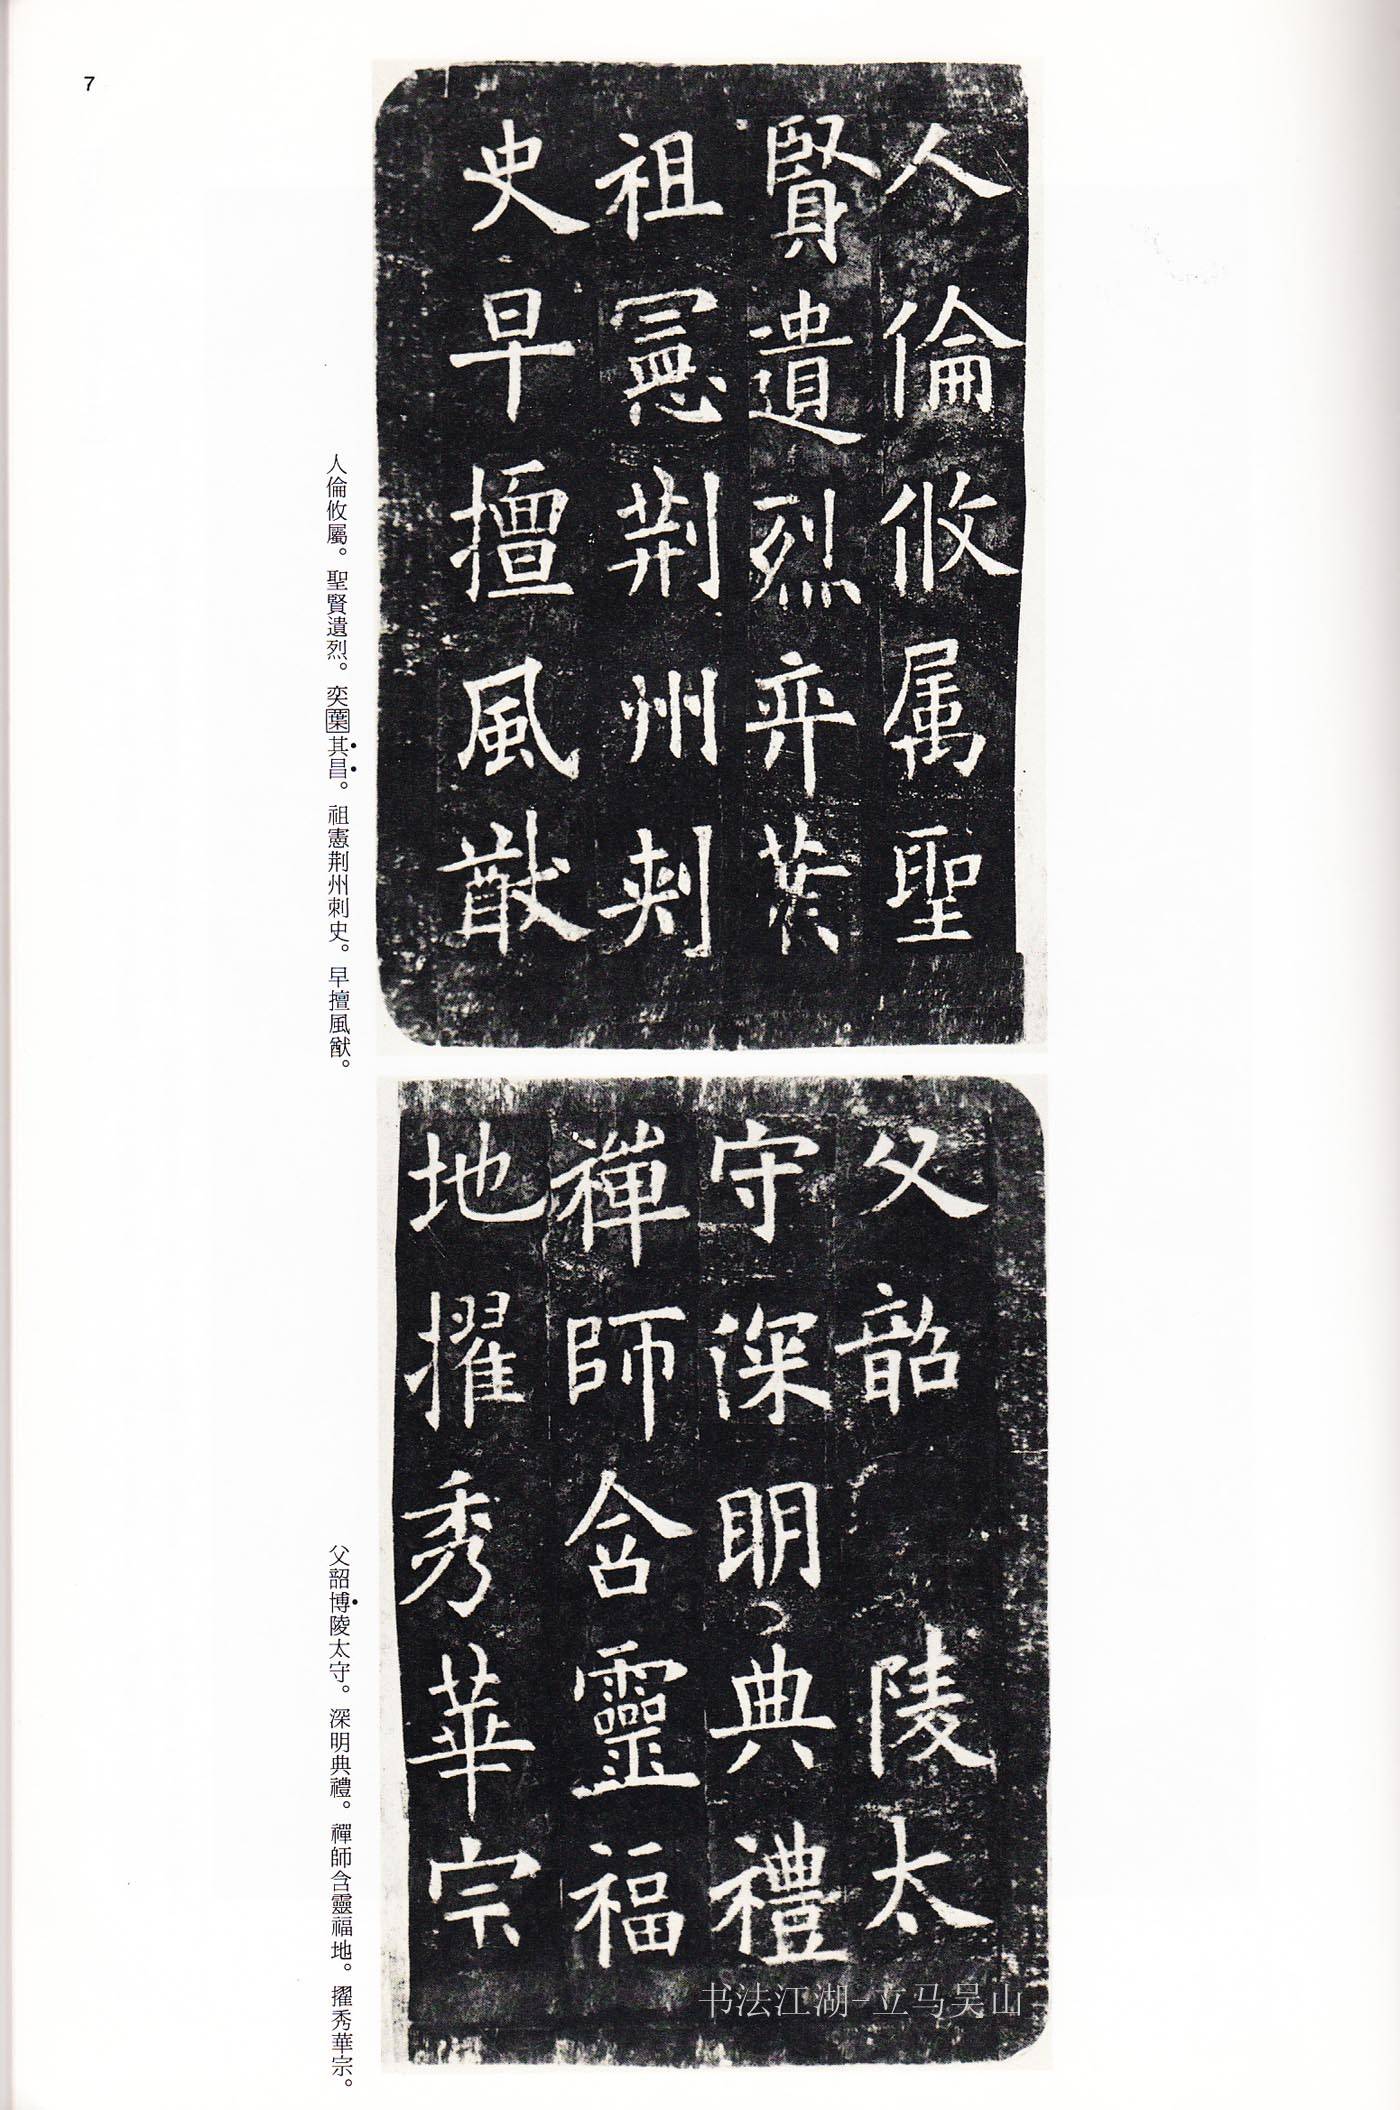 7
人倫攸属聖
賢遺烈弈葉
祖憲荆州刺
史早擅風猷
人倫攸屬。聖賢遺烈。奕葉其昌。祖憲荆州刺史。早擅風猷。
父韶陵太
守深明典禮
禪師含靈福
地擢秀華宗
父韶博陵太守。深明典禮。禪師含靈福地。擢秀華宗。
书法江湖-立马吴山